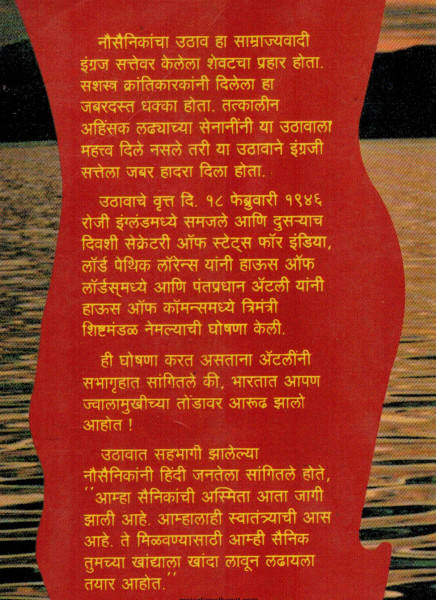 नौसैनिकांचा उठाव हा साम्राज्यवादी
इंग्रज सत्तेवर केलेला शेवटचा प्रहार होता.
सशस्त्र क्रांतिकारकांनी दिलेला हा
जबरदस्त धक्का होता. तत्कालीन
अहिंसक लढ्याच्या सेनानींनी या उठावाला
महत्त्व दिले नसले तरी या उठावाने इंग्रजी
सत्तेला जबर हादरा दिला होता.
उठावाचे वृत्त दि. १८ फेब्रुवारी १९४६
रोजी इंग्लंडमध्ये समजले आणि दुसऱ्याच
दिवशी सेक्रेटरी ऑफ स्टेट्स फॉर इंडिया,
लॉर्ड पेथिक लॉरेन्स यांनी हाऊस ऑफ
लॉर्डस्‌मध्ये आणि पंतप्रधान ॲटली यांनी
हाऊस ऑफ कॉमन्समध्ये त्रिमंत्री
शिष्टमंडळ नेमल्याची घोषणा केली.
ही घोषणा करत असताना ॲटलींनी
सभागृहात सांगितले की, भारतात आपण
ज्वालामुखीच्या तोंडावर आरूढ झालो
आहोत !
उठावात सहभागी झालेल्या
नौसैनिकांनी हिंदी जनतेला सांगितले होते,
"आम्हा सैनिकांची अस्मिता आता जागी
झाली आहे. आम्हालाही स्वातंत्र्याची आस
आहे. ते मिळवण्यासाठी आम्ही सैनिक
तुमच्या खांद्याला खांदा लावून लढायला
तयार आहोत."